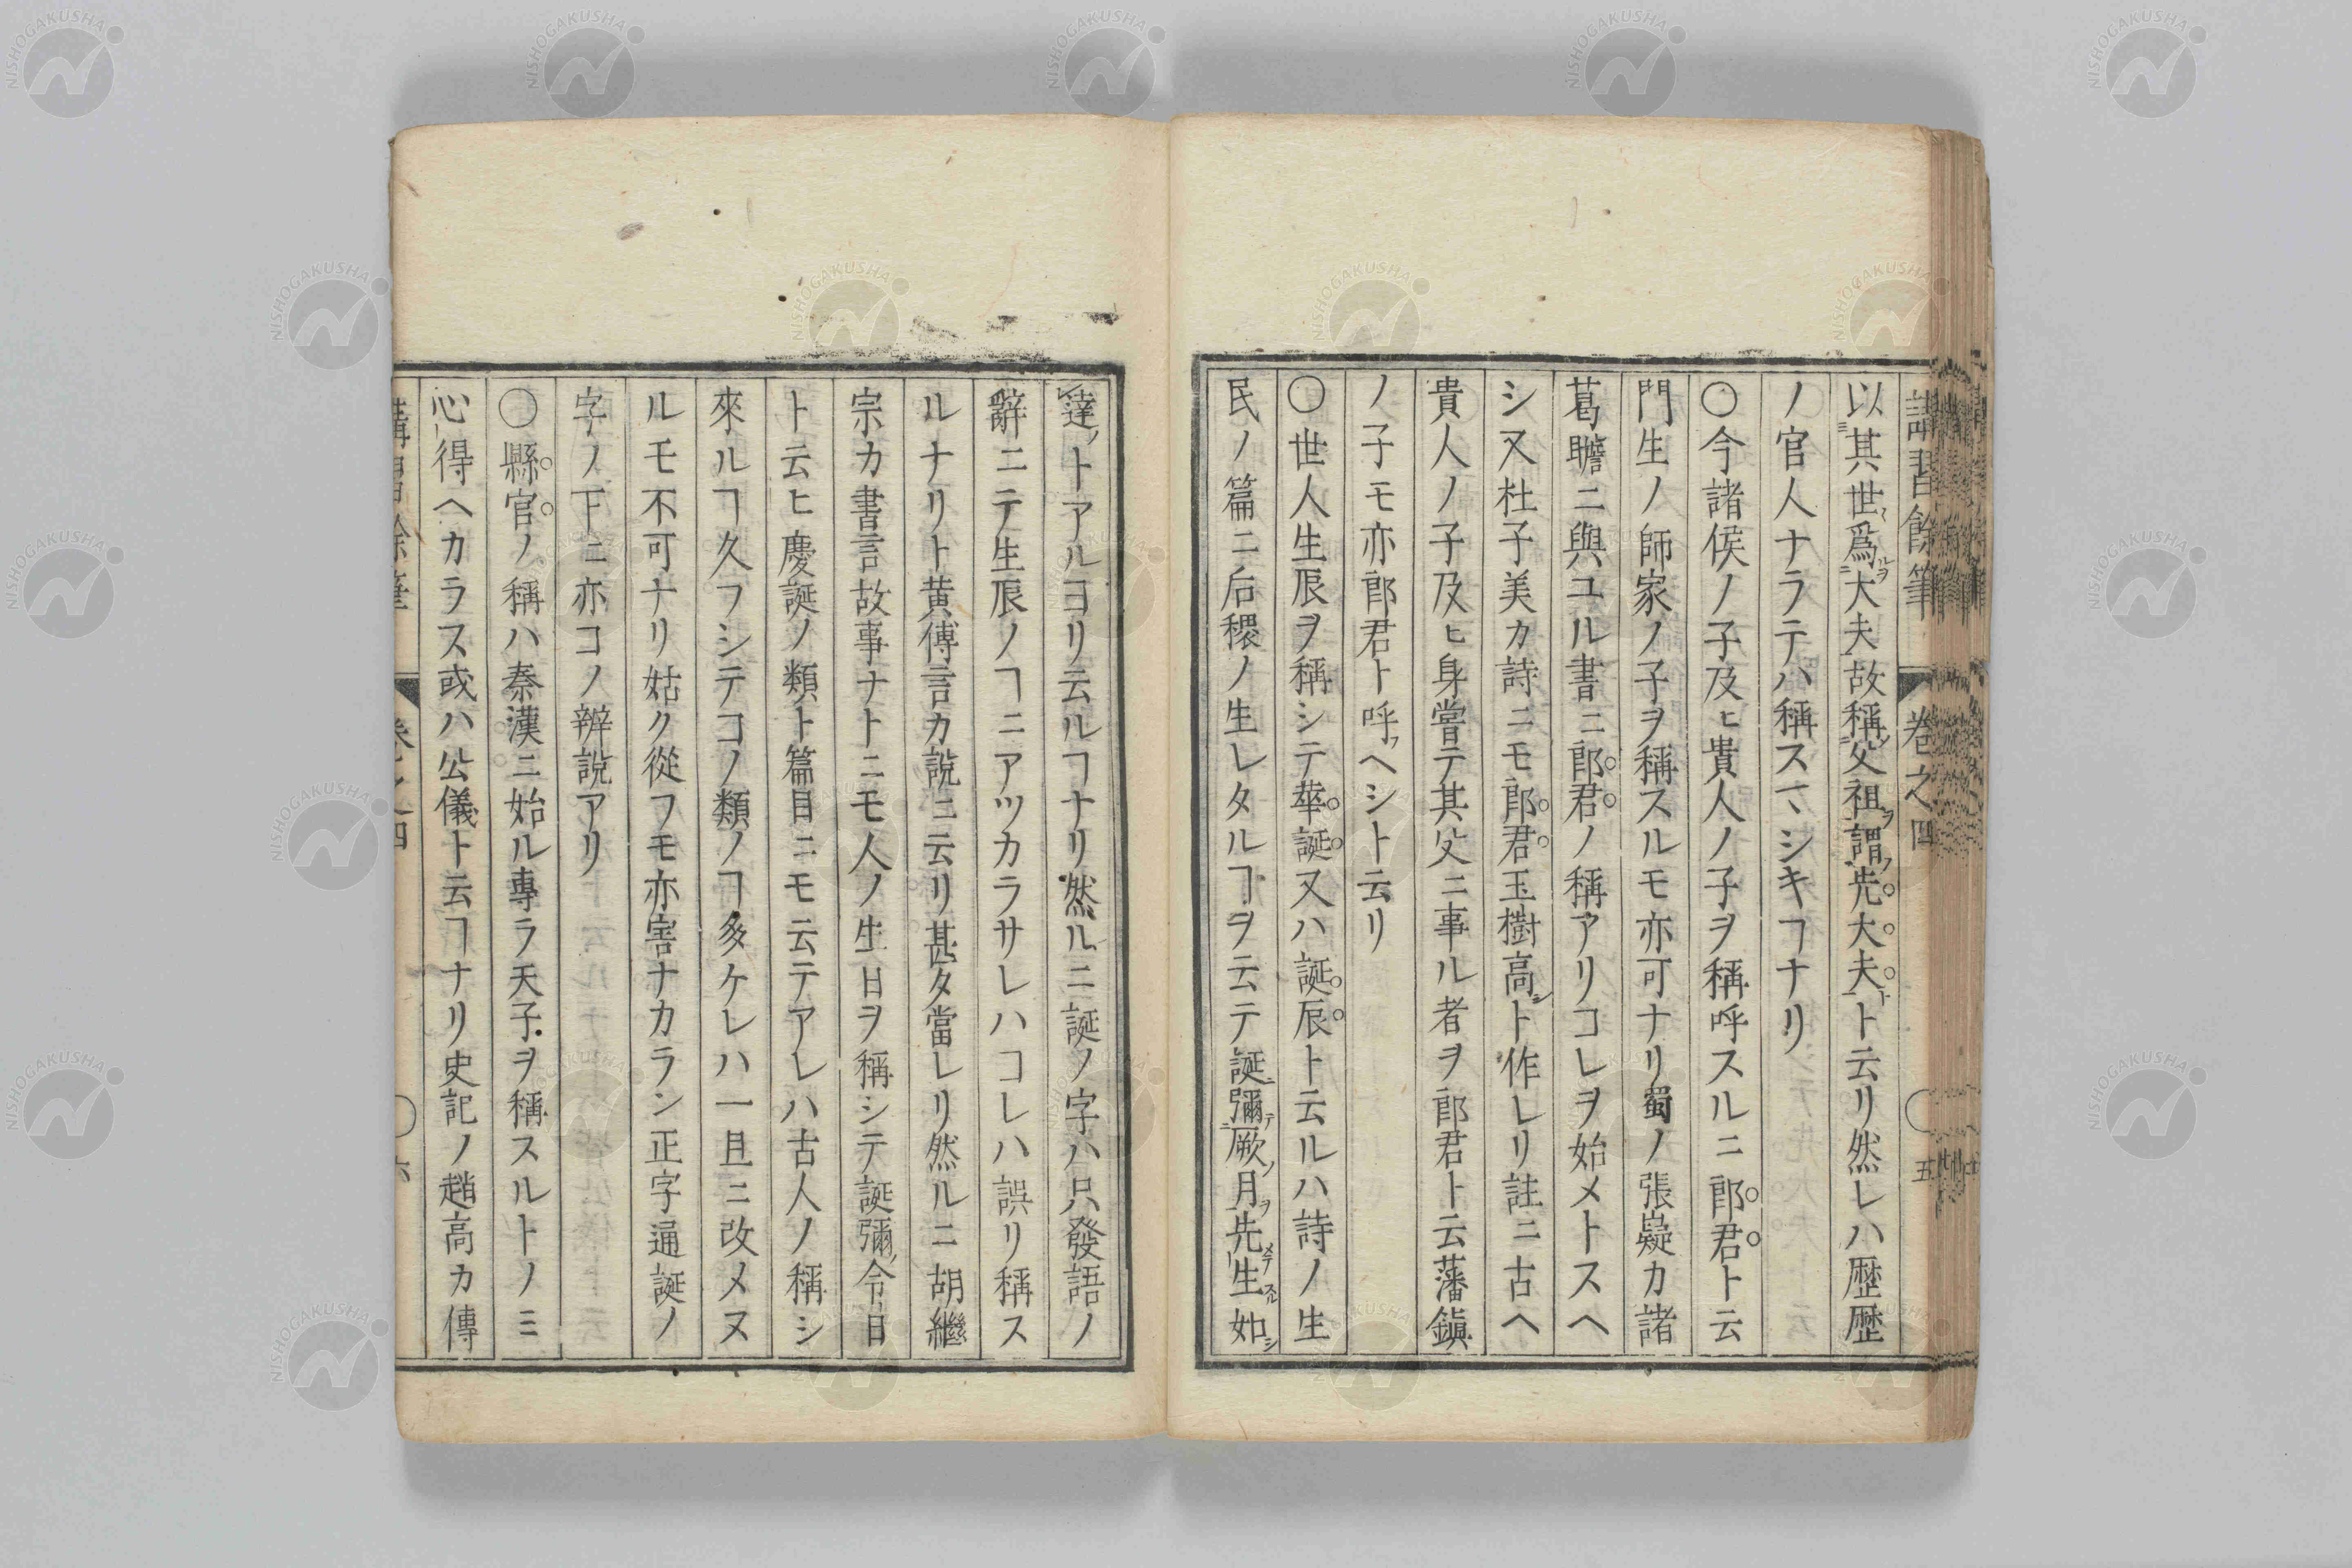 講習餘筆 卷之四 〇 五
以其世爲大夫故稱父祖謂先大夫ト云リ然レハ歴歴
ノ官人ナラテハ稱スマシキヿナリ
〇今諸侯ノ子及ヒ貴人ノ子ヲ稱呼スルニ郎君ト云
門生ノ師家ノ子ヲ稱スルモ亦可ナリ蜀ノ張嶷カ諸
葛瞻ニ與ユル書ニ郎君ノ稱アリコレヲ始メトスヘ
シ又杜子美カ詩ニモ郎君玉樹高シト作レリ註ニ古ヘ
貴人ノ子及ヒ身嘗テ其父ニ事ル者ヲ郎君ト云藩鎭
ノ子モ亦郎君ト呼フヘシト云リ
〇世人生辰ヲ稱シテ華誕又ハ誕辰ト云ルハ詩ノ生
民ノ篇ニ后稷ノ生レタルヿヲ云テ誕彌厥月先生如
達トアルヨリ云ルヿナリ然ルニ誕ノ字ハ只發語ノ
辭ニテ生辰ノヿニアツカラサレハコレハ誤リ稱ス
ルナリト黄傅言カ說ニ云リ甚タ當レリ然ルニ胡繼
宗カ書言故事ナトニモ人ノ生日ヲ稱シテ誕彌ノ令日
ト云ヒ慶誕ノ類ト篇目ニモ云テアレハ古人ノ稱シ
來ルヿ久フシテコノ類ノヿ多ケレハ一旦ニ改メヌ
ルモ不可ナリ姑ク從フモ亦害ナカラン正字通誕ノ
字ノ下ニ亦コノ辨說アリ
〇縣官ノ稱ハ秦漢ニ始ル專ラ天子ヲ稱スルトノミ
心得ヘカラス或ハ公儀ト云ヿナリ史記ノ趙高カ傳
講習餘筆 卷之四 〇 六
NISHOGAKUSHA